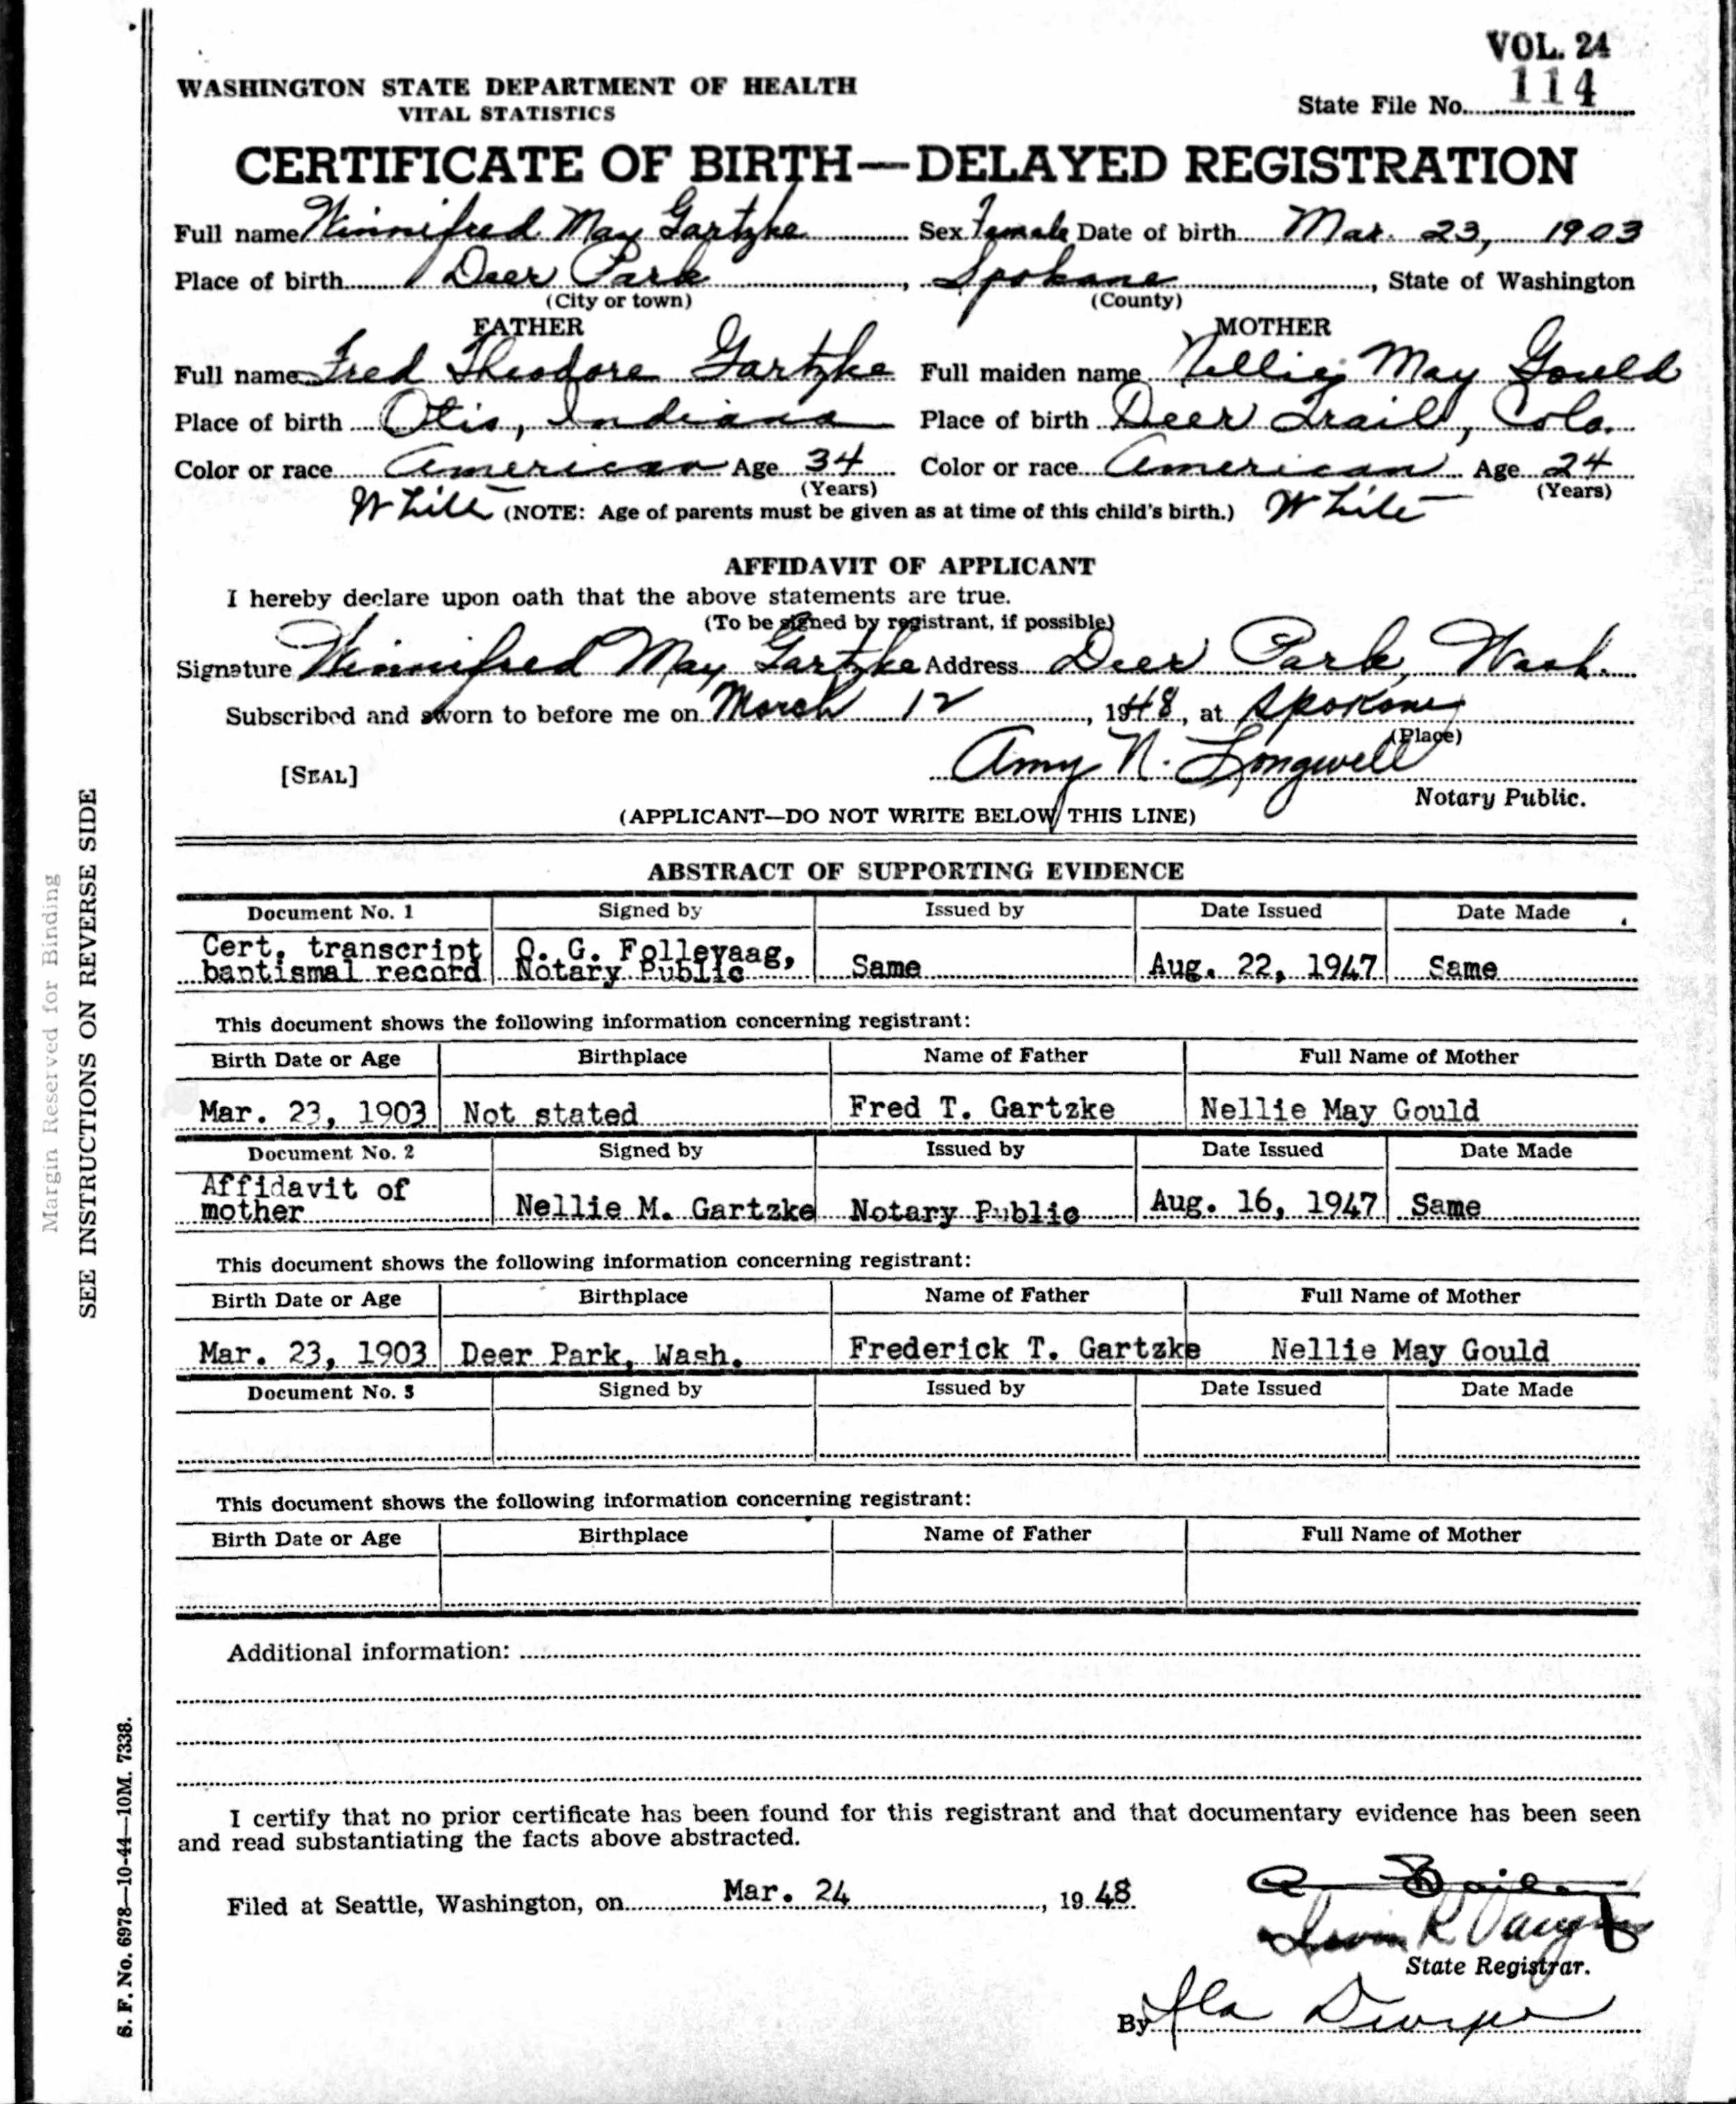 VOL. 24
WASHINGTON STATE DEPARTMENT OF HEALTH
VITAL STATISTICS
State File No. 114
CERTIFICATE OF BIRTH—DELAYED REGISTRATION
Full name Winnifred May Gartzke Sex Female Date of birth Mar. 23, 1903
Place of birth Deer Park, Spokane, State of Washington
(City or town) (County)
FATHER MOTHER
Full name Fred Theodore Gartzke Full maiden name Nellie May Gould
Place of birth Otis, Indiana Place of birth Deer Trail, Colo.
Color or race American Age 34 Color or race American Age 24
(Years) (Years)
White (NOTE: Age of parents must be given as at time of this child's birth.) White
AFFIDAVIT OF APPLICANT
I hereby declare upon oath that the above statements are true.
(To be signed by registrant, if possible)
Signature Winnifred May Gartzke Address Deer Park, Wash.
Subscribed and sworn to before me on March 12, 1948, at Spokane
(Place)
Amy N. Longwell
[SEAL]
Notary Public.
(APPLICANT—DO NOT WRITE BELOW THIS LINE)
ABSTRACT OF SUPPORTING EVIDENCE
Document No. 1 Signed by Issued by Date Issued Date Made
Cert. transcript O. G. Follevaag,
baptismal record Notary Public Same Aug. 22, 1947 Same
This document shows the following information concerning registrant:
Birth Date or Age Birthplace Name of Father Full Name of Mother
Mar. 23, 1903 Not stated Fred T. Gartzke Nellie May Gould
Document No. 2 Signed by Issued by Date Issued Date Made
Affidavit of
mother Nellie M. Gartzke Notary Public Aug. 16, 1947 Same
This document shows the following information concerning registrant:
Birth Date or Age Birthplace Name of Father Full Name of Mother
Mar. 23, 1903 Deer Park, Wash. Frederick T. Gartzke Nellie May Gould
Document No. 3 Signed by Issued by Date Issued Date Made
This document shows the following information concerning registrant:
Birth Date or Age Birthplace Name of Father Full Name of Mother
Additional information:
I certify that no prior certificate has been found for this registrant and that documentary evidence has been seen
and read substantiating the facts above abstracted.
Filed at Seattle, Washington, on Mar. 24, 1948
State Registrar.
By
Margin Reserved for Binding
SEE INSTRUCTIONS ON REVERSE SIDE
S. F. No. 6978—10-44—10M. 7338.